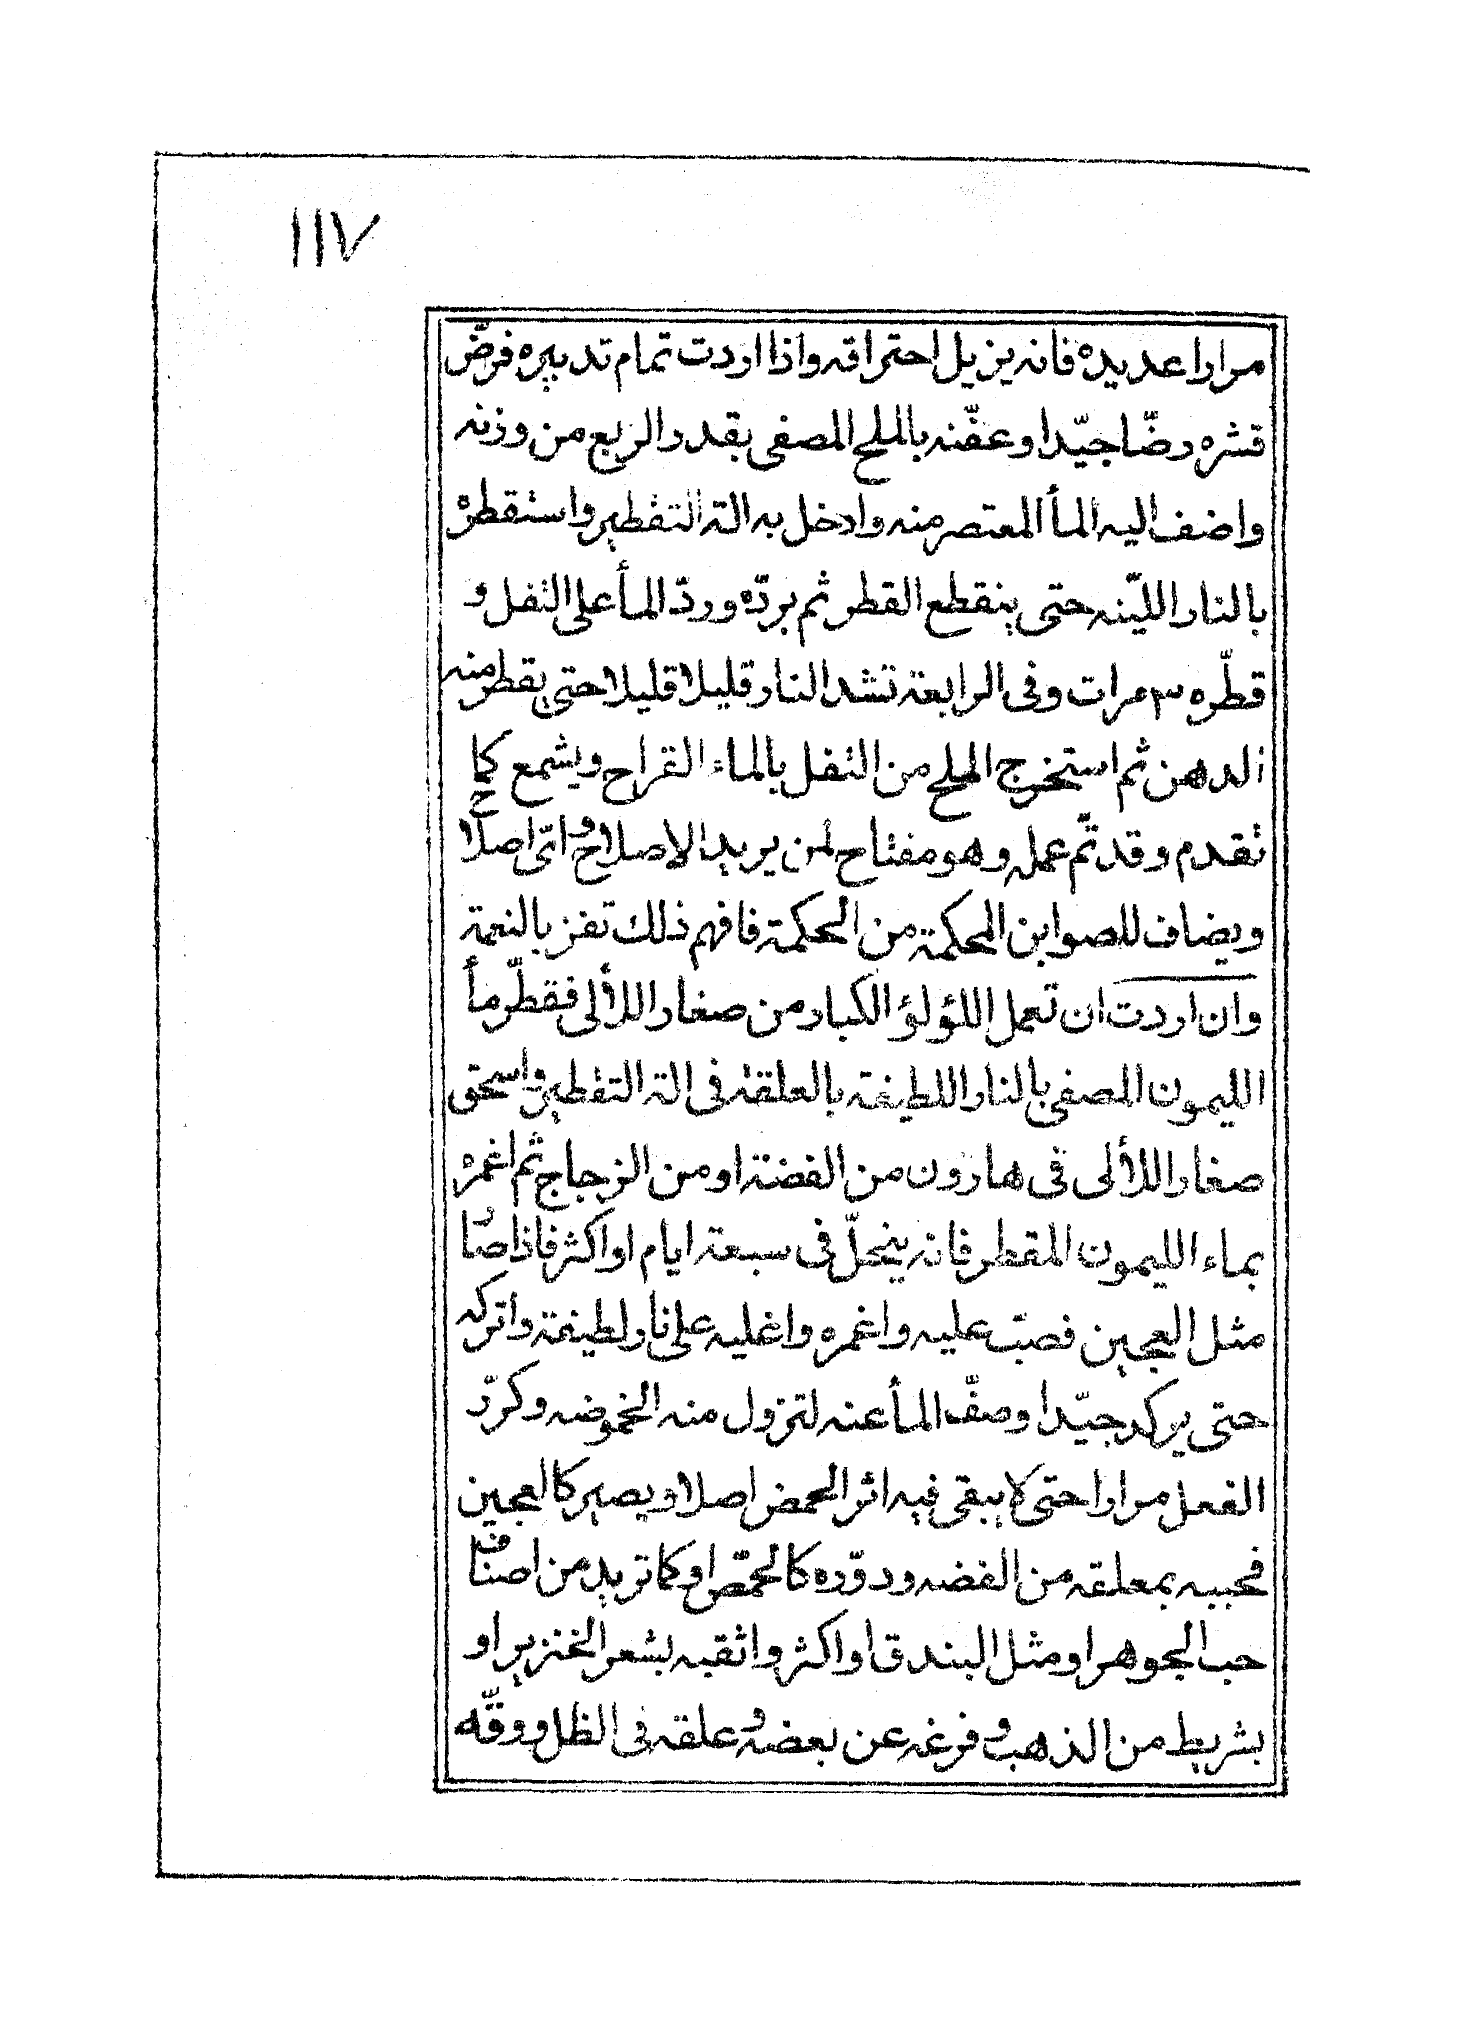 ١١٧
مرارا عديده فانه يزيل احتراقه واذا اردت تمام تدبيره فرضّ
قشره رضّا جيّدا وعفّنه بالملح المصفى بقدر الربع من وزنه
واضف اليه المأ المعتصر منه وادخل به الة التقطير واستقطره
بالنار الليّنه حتى ينقطع القطر ثم برّده وردّ المأ على الثفل و
قطّره ٣ مرات وفى الرابعة تشد النار قليلا قليلا حتى يقطر منه
الدهن ثم استخرج الملح من الثفل بالماء القراح ويشمع كما
تقدم وقد تمّ عمله وهو مفتاح لمن يريد الاصلاح واىّ اصلاح
ويضاف للصوابن المحكمة من الحكمة فافهم ذلك تفز بالنعمة
وان اردت ان تعمل اللؤلؤ الكبار من صغار اللألى فقطّر مأ
الليمون المصفى بالنار اللطيفة بالعلقة فى الة التقطير واسحق
صغار اللألى فى هارون من الفضة او من الزجاج ثم اغمره
بماء الليمون المقطر فانه ينحلّ فى سبعة ايام او اكثر فاذا صار
مثل العجين فصبّ عليه واغمره واغليه على نار لطيفة واتركه
حتى يركد جيّدا وصفّ المأ عنه لتزول منه الخموضه وكرّر
الفعل مرارا حتى لا يبقى فيه اثر الحمض اصلا ويصير كالعجين
فحببه بمعلقه من الفضه ودوّره كالحمّص او كما تريد من اصناف
حب الجوهر او مثل البندق او اكثر واثقبه بشعر الخنزير او
بشريط من الذهب وفرغه عن بعضه وعلقه فى الظل ووقّه